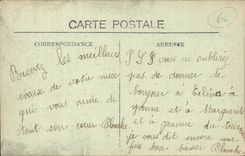 CARTE POSTALE
CORRESPONDANCE
ADRESSE
Recevez les meilleurs
voeux de votre
qui vous aime de
tout son coeur Blanche
P.S. vous n'oublierez
pas de donner le
bonjour à Edina à
Yvonne et à Marguerite
et à Jeanne du
je vous dit encore une
fois bon baiser Blanche